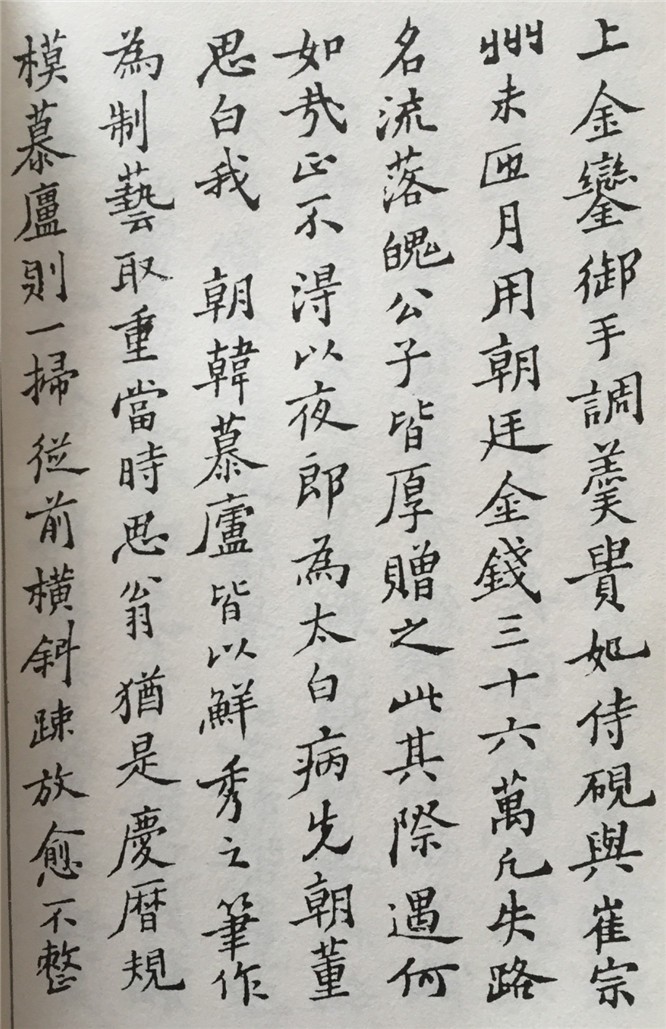 上金鑾御手調羹貴妃侍硯與崔宗
州未匝月用朝廷金錢三十六萬凡失路
名流落魄公子皆厚贈之此其際遇何
如哉正不得以夜郎為太白病先朝董
思白我 朝韓慕廬皆以鮮秀之筆作
為制藝取重當時思翁猶是慶曆規
模慕廬則一掃從前橫斜疎放愈不整